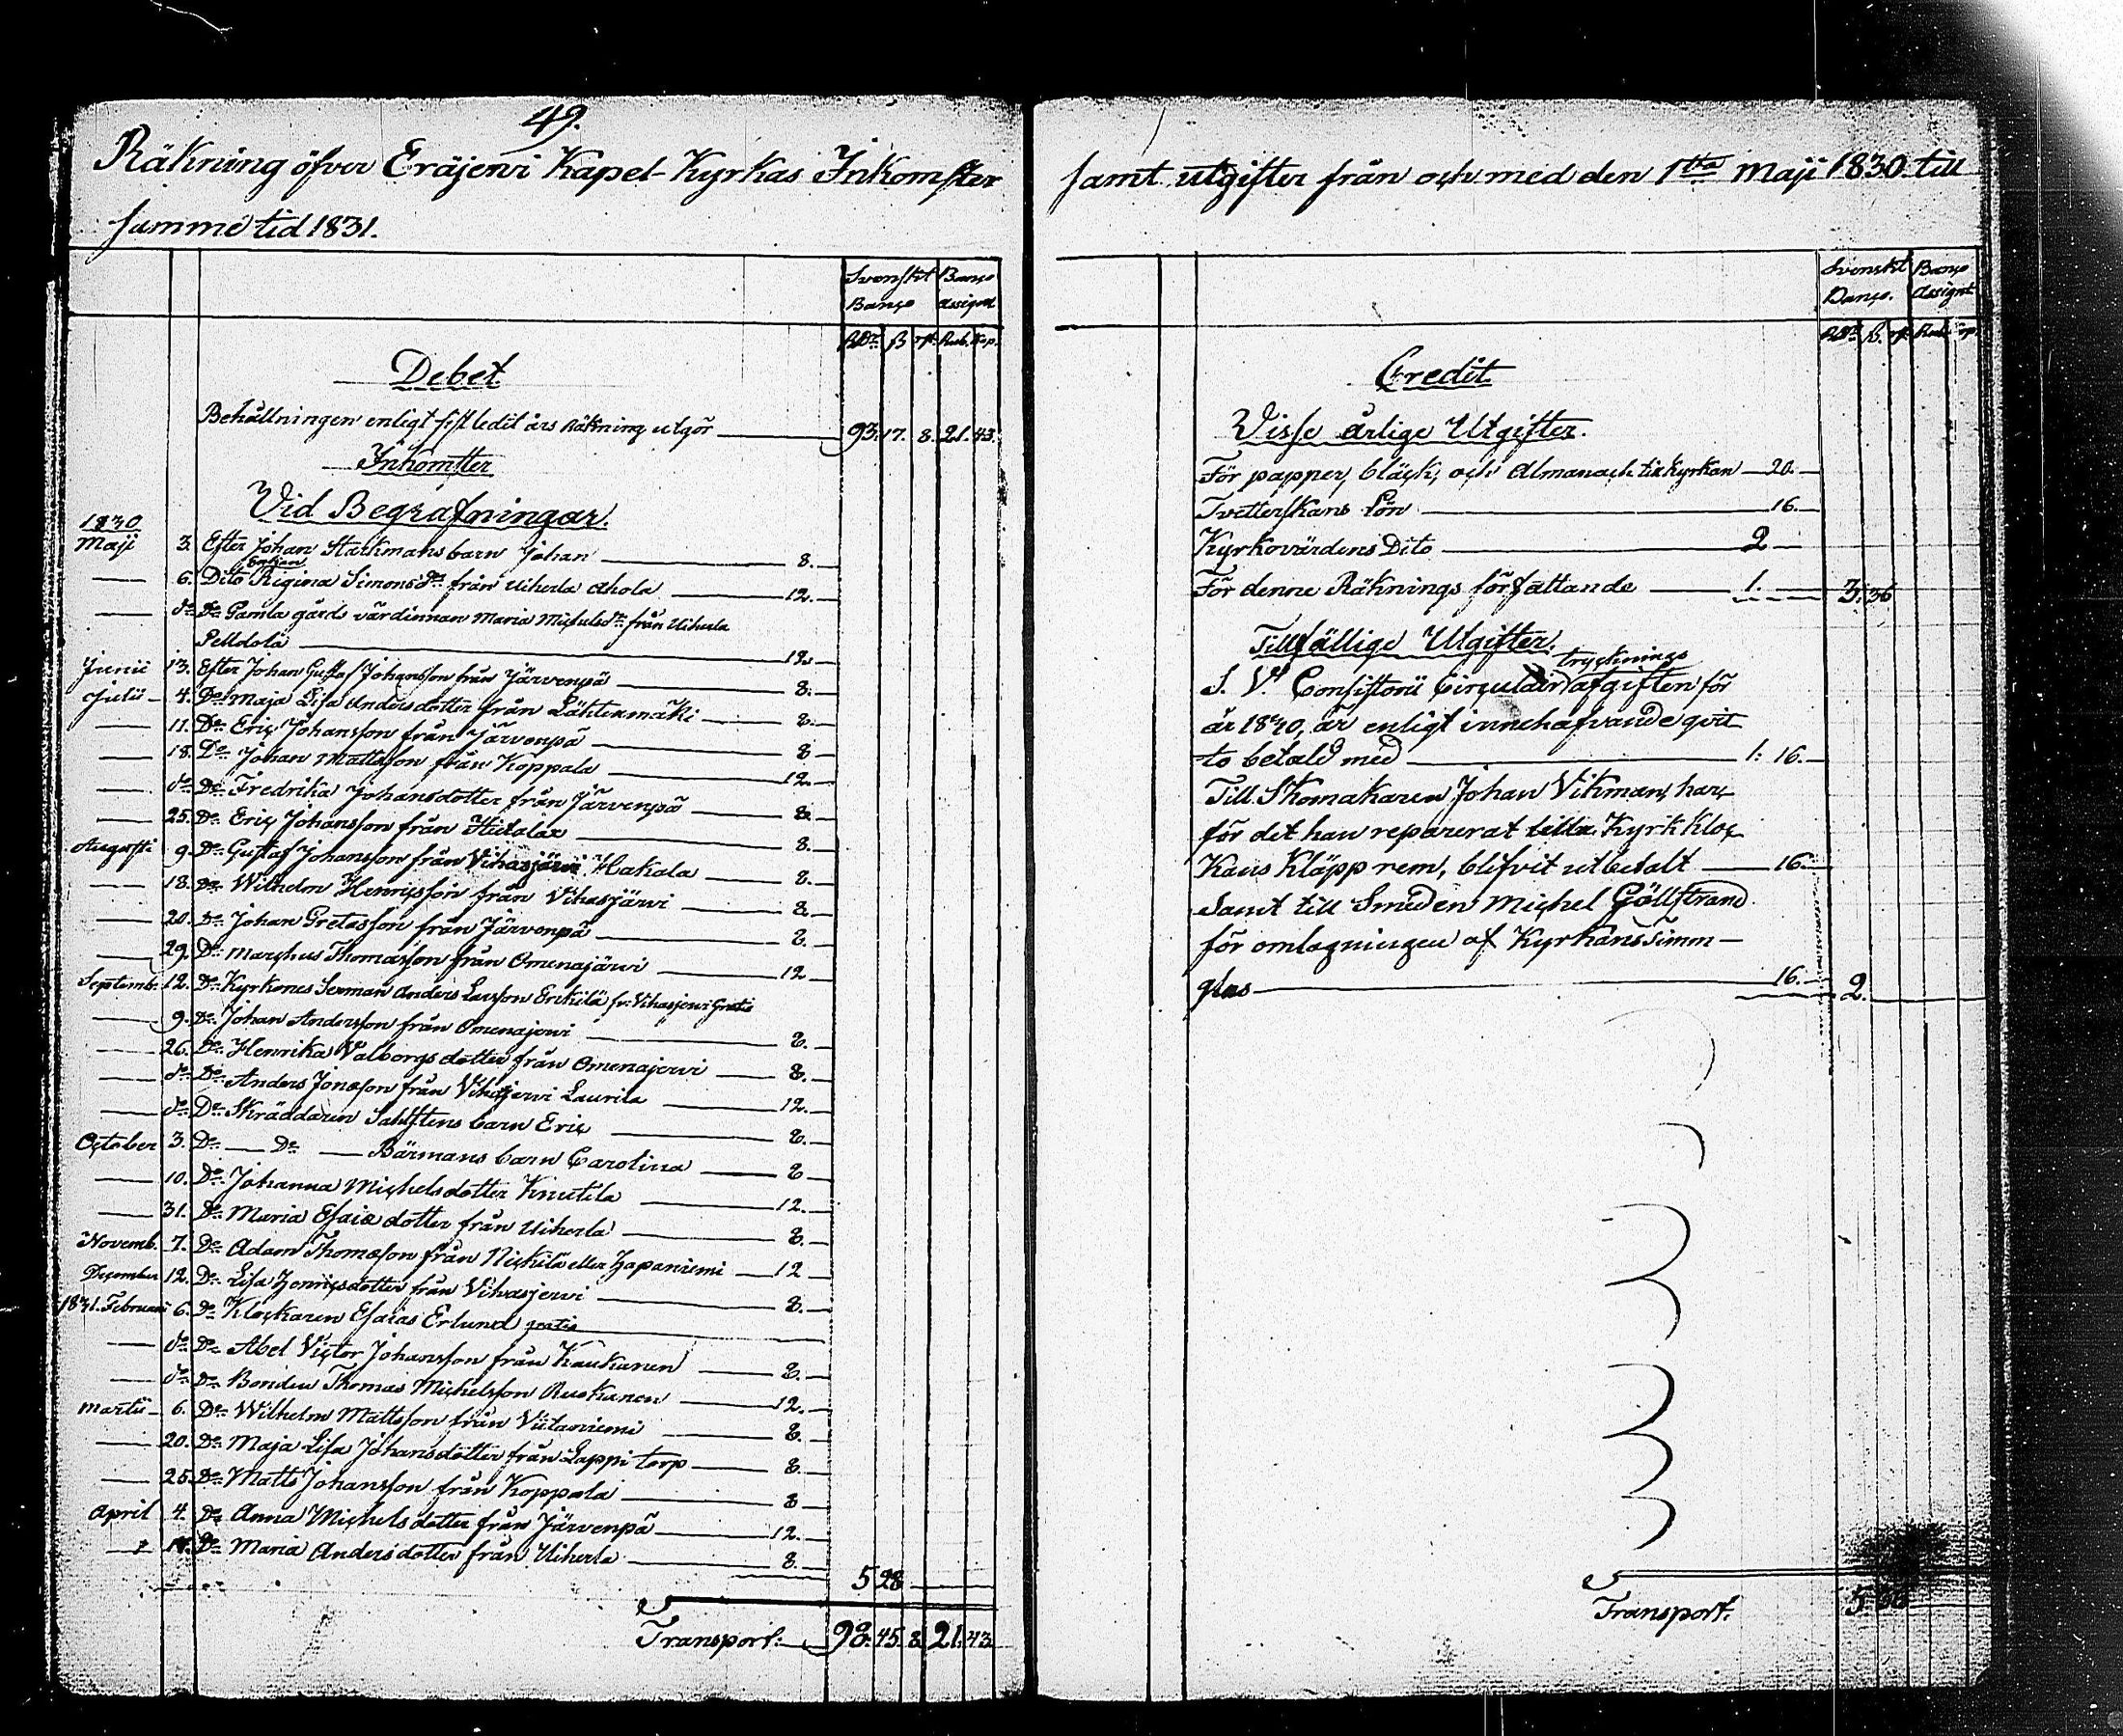 49.
Räkning öfver Eräjervi Kapel-Kyrkas Inkomster
samme tid 1831.
Svenskt Banco
Banco assignat
RDr ß rst. Rub. Kop.
Debet
Behållningen enligt sistledit års Räkning utgör 93. 17. 8. 21. 43.
Inkomster
Vid Begrafningar.
1830
Maji 3. Efter Johan Starkmans barn Johan 8.
Enkan
6. Dito Regina Simonsdr från Uiherla Ahola 12.
do Do Gamla gårds värdinnan Maria Michelsdr från Uiherla
Pelldola 12.
Junii 13. Efter Johan Gustaf Johansson från Järvenpä 8.
Julii 4. Do Maja Lisa Andersdotter från Lähtenmäki 8.
11. Do Eric Johansson från Järvenpä 8
18. Do Johan Mattsson från Koppala 12.
do Do Fredrika Johansdotter från Järvenpä 8.
25. Do Eric Johansson från Hietalax 8.
Augusti 9. Do Gustaf Johansson från Vihasjärvi Hakala 8.
18. Do Wilhelm Henricsson från Vihasjärvi 8.
20. Do Johan Gretasson från Järvenpä 8.
29. Do Marchus Thomasson från Omenajärvi 12
Septemb. 12. Do Kyrkones Sexman Anders Larsson Erikilä fr. Vihasjervi Gratis
9. Do Johan Andersson från Omenajervi 8.
26. Do Henrika Valborgsdotter från Omenajervi 8.
do Do Anders Jonasson från Vihasjervi Laurila 12.
do Do Skräddaren Sahlstens barn Eric 8.
October 3. Do Do Bärmans barn Carolina 8
10. Do Johanna Michelsdotter Knutila 12.
31. Do Maria Esaiædotter från Uiherla 8.
Novemb. 7. Do Adam Thomasson från Nickilä eller Hapaniemi 12
December 12. Do Lisa Henricsdotter från Vihasjervi 8.
1831. Februari 6. Do Klockaren Esaias Erlund gratis
do Do Abel Victor Johansson från Kaukanen 8.
do Do Bonden Thomas Michelsson Ruokanen 12.
Martii 6. Do Wilhelm Mattsson från Viitaniemi 8.
20. Do Maja Lisa Johansdotter från Lappi torp 8.
25. Do Matts Johansson från Koppala 8
April 4. Do Anna Michelsdotter från Järvenpä 12.
Do Maria Andersdotter från Uiherla 8.
5 28
Transport. 98. 45. 8. 21. 43
samt utgifter från och med den 1sta Maji 1830 till
Svenskt Banco
Banco. Assignt
RDr ß. rst. Rub. Kop.
Credit
Visse årlige Utgifter.
För papper, bläck, och Almanach till Kyrkan 20.
Tvetterskans Lön 16.
Kyrkovärdens Dito 2
För denne Räknings författande 1. 3. 36
Tillfällige Utgifter.
trycknings
S. V. Consistorii Circulair afgiften för
år 1830, är enligt innehafvande qvit
to betald med 1. 16.
Till Skomakaren Johan Vikman, har
för det han reparerat Kyrk kloc
kans Kläpp rem, blifvit utbetalt 16.
Samt till Smeden Michel Göllstrand
för omlagningen af Kyrkans timm-
glas 16. 2.
Transport. 5.